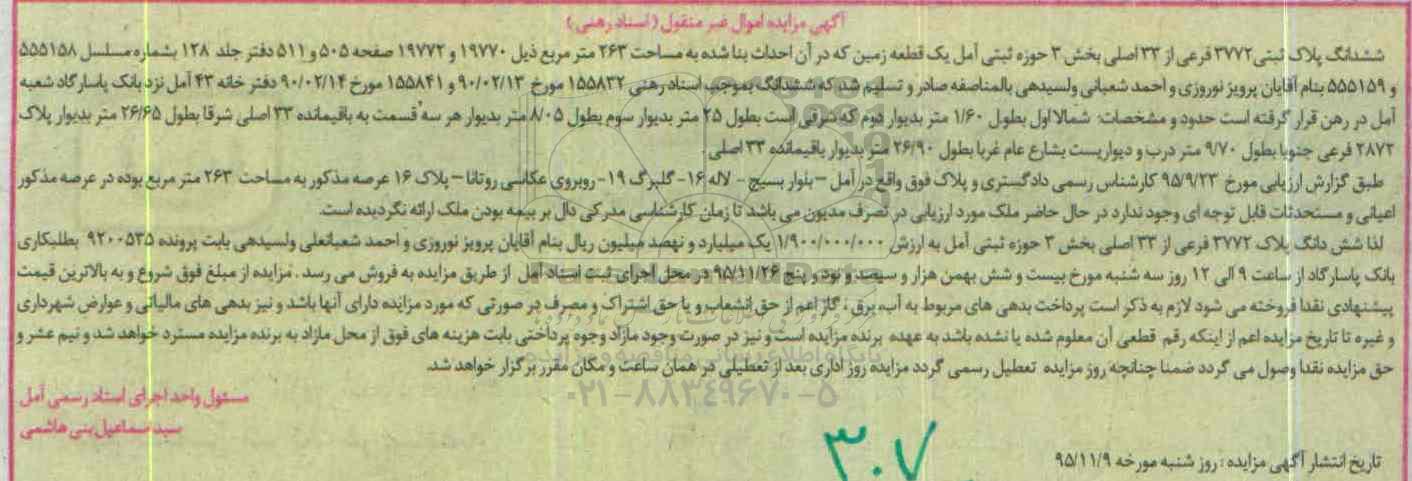 آگهی مزایده اموال غیر منقول (اسناد رهنی)
ششدانگ پلاک ثبتی ۳۷۷۲ فرعی از ۳۳ اصلی بخش ۳ حوزه ثبتی آمل یک قطعه زمین که در آن احداث بنا شده به مساحت ۲۶۳ متر مربع ذیل ۱۹۷۷۰ و ۱۹۷۷۲ صفحه ۵۰۵ و ۵۱۱ دفتر جلد ۱۲۸ بشماره مسلسل ۵۵۵۱۵۸
و ۵۵۵۱۵۹ بنام آقایان پرویز نوروزی و احمد شعبانی ولسیدهی بالمناصفه صادر و تسلیم شد که ششدانگ بموجب اسناد رهنی ۱۵۵۸۳۲ مورخ ۹۰/۰۲/۱۳ و ۱۵۵۸۴۱ مورخ ۹۰/۰۲/۱۴ دفتر خانه ۴۳ آمل نزد بانک پاسارگاد شعبه
آمل در رهن قرار گرفته است حدود و مشخصات: شمالا اول بطول ۱/۶۰ متر بدیوار دوم که شرقی است بطول ۲۵ متر بدیوار سوم بطول ۸/۰۵ متر بدیوار هر سه قسمت به باقیمانده ۳۳ اصلی شرقا بطول ۲۶/۶۵ متر بدیوار پلاک
۲۸۷۲ فرعی جنوبا بطول ۹/۷۰ متر درب و دیواریست بشارع عام غربا بطول ۲۶/۹۰ متر بدیوار باقیمانده ۳۳ اصلی.
طبق گزارش ارزیابی مورخ ۹۵/۹/۲۳ کارشناس رسمی دادگستری و پلاک فوق واقع در آمل – بلوار بسیج – لاله ۱۶ – گلبرگ ۱۹ – روبروی عکاسی روتانا – پلاک ۱۶ عرصه مذکور به مساحت ۲۶۳ متر مربع بوده در عرصه مذکور
اعیانی و مستحدثات قابل توجه ای وجود ندارد در حال حاضر ملک مورد ارزیابی در تصرف مدیون می باشد تا زمان کارشناسی مدرکی دال بر بیمه بودن ملک ارائه نگردیده است.
لذا شش دانگ پلاک ۳۷۷۲ فرعی از ۳۳ اصلی بخش ۳ حوزه ثبتی آمل به ارزش ۱/۹۰۰/۰۰۰/۰۰۰ یک میلیارد و نهصد میلیون ریال بنام آقایان پرویز نوروزی و احمد شعبانعلی ولسیدهی بابت پرونده ۹۲۰۰۵۳۵ بطلبکاری
بانک پاسارگاد از ساعت ۹ الی ۱۲ روز سه شنبه مورخ بیست و شش بهمن هزار و سیصد و نود و پنج ۹۵/۱۱/۲۶ در محل اجرای ثبت اسناد آمل از طریق مزایده به فروش می رسد. مزایده از مبلغ فوق شروع و به بالاترین قیمت
پیشنهادی نقدا فروخته می شود لازم به ذکر است پرداخت بدهی های مربوط به آب، برق، گاز اعم از حق انشعاب و یا حق اشتراک و مصرف در صورتی که مورد مزایده دارای آنها باشد و نیز بدهی های مالیاتی و عوارض شهرداری
و غیره تا تاریخ مزایده اعم از اینکه رقم قطعی آن معلوم شده یا نشده باشد به عهده برنده مزایده است و نیز در صورت وجود مازاد وجوه پرداختی بابت هزینه های فوق از محل مازاد به برنده مزایده مسترد خواهد شد و نیم عشر و
حق مزایده نقدا وصول می گردد ضمنا چنانچه روز مزایده تعطیل رسمی گردد مزایده روز اداری بعد از تعطیلی در همان ساعت و مکان مقرر برگزار خواهد شد.
۰۲۱-۸۸۳۴۹۶۷۰-۵
مسئول واحد اجرای اسناد رسمی آمل
سید اسماعیل بنی هاشمی
۳۰۷
تاریخ انتشار آگهی مزایده: روز شنبه مورخه ۹۵/۱۱/۹